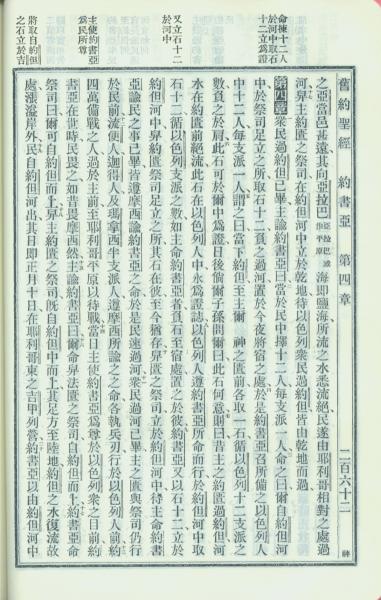 舊約聖經 約書亞 第四章 二百六十二 神
之亞當邑甚遠其向亞拉巴亞拉巴或作平原海即鹽海所流之水悉流絕民遂由耶利哥相對之處過
河舁主約匱之祭司在約但河中立於乾地待以色列衆民過約但皆由乾地而過
第四章 衆民過約但已畢主諭約書亞曰當於民中擇十二人每支派一人命之曰爾自約但河
中於祭司足立之所取石十二負之過河置於今夜將宿之處於是約書亞召所備之以色列人
中十二人每支派一人謂之曰當下約但至主爾 神之匱前各取一石循以色列十二支派之
數負之於肩此石可於爾中爲證日後倘爾子孫問爾曰此石何意則曰昔主之約匱過約但河
水在約匱前絕流此石在以色列人中永爲證誌以色列人遵約書亞所命而行於約但河中取
石十二循以色列支派之數如主命約書亞者負石至宿處置之於彼約書亞又以石十二立於
約但河中舁約匱祭司足立之所其石在彼至今猶存舁匱之祭司立於約但河中待主命約書
亞諭民之事已畢皆遵摩西命約書亞者於是民速過河衆民過河已畢主之匱與祭司仍行
於民前流便人迦得人及瑪拿西半支派人遵摩西所諭之之命各執兵刃行於以色列人前約
四萬備戰之人過於主前至耶利哥平原以待戰當日主使約書亞爲尊於以色列衆之目前約
書亞在世時民畏之如昔畏摩西然主諭約書亞曰爾命舁法匱之祭司自約但而上約書亞命
祭司曰爾可自約但而上舁主約匱之祭司旣自約但中而上其足方至陸地約但之水復流故
處漲溢岸外民自約但河出其日即正月十日在耶利哥東之吉甲列營約書亞以由約但河中
命揀十二人
於河中取石
十二立爲證
又立石十二
於河中
主使約書亞
爲民所尊
將取自約但
之石立於吉